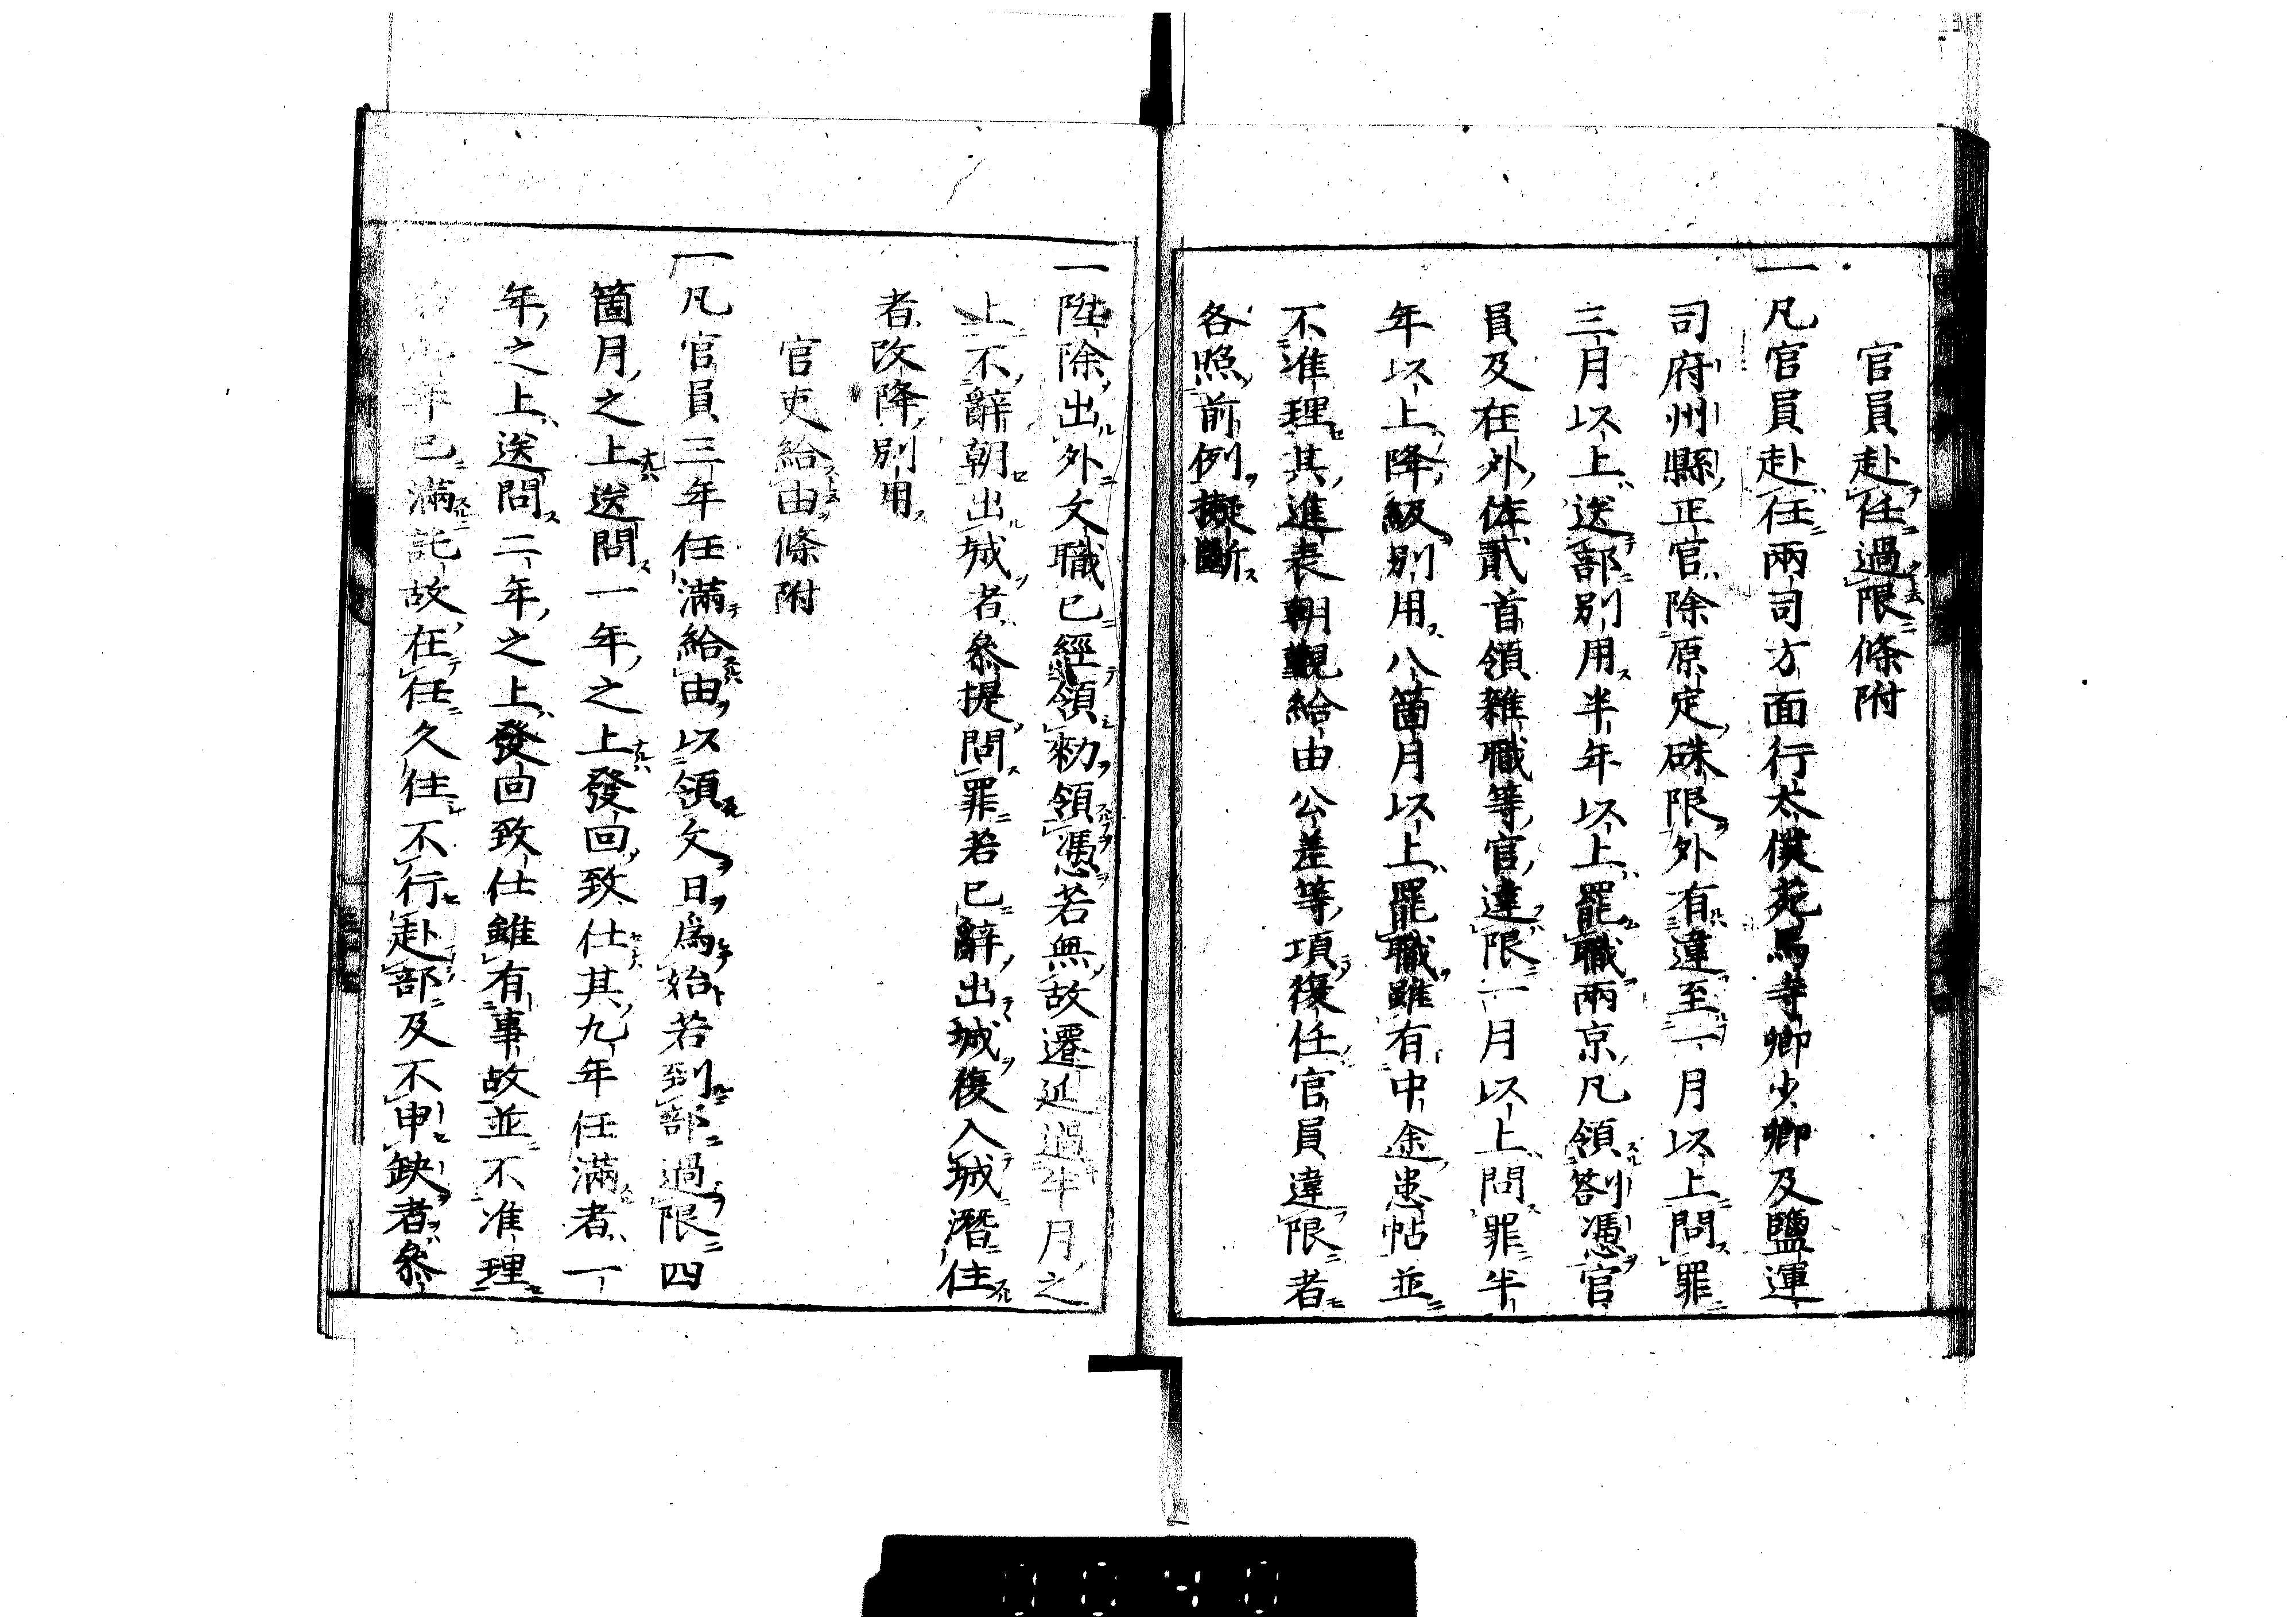 官員赴任過限條附
一凡官員赴任兩司方面行太僕苑馬寺卿少卿及鹽運
司府州縣正官除原定硃限外有違至一月以上問罪
三月以上送部別用半年以上罷職兩京凡領劄憑官
員及在外佐貳首領雜職等官違限一月以上問罪半
年以上降級別用八箇月以上罷職雖有中途患帖並
不准理其進表朝覲給由公差等項復任官員違限者
各照前例擬斷
一陞除出外文職已經領勑領憑若無故遷延過半月之
上不辭朝出城者叅提問罪若已辭出城復入城潛住
者改降別用
官吏給由條附
一凡官員三年任滿給由以領文日爲始若到部過限四
箇月之上送問一年之上發回致仕其九年任滿者一
年之上送問二年之上發回致仕雖有事故並不准理
年已滿託故在任久住不行赴部及不申缺者叅